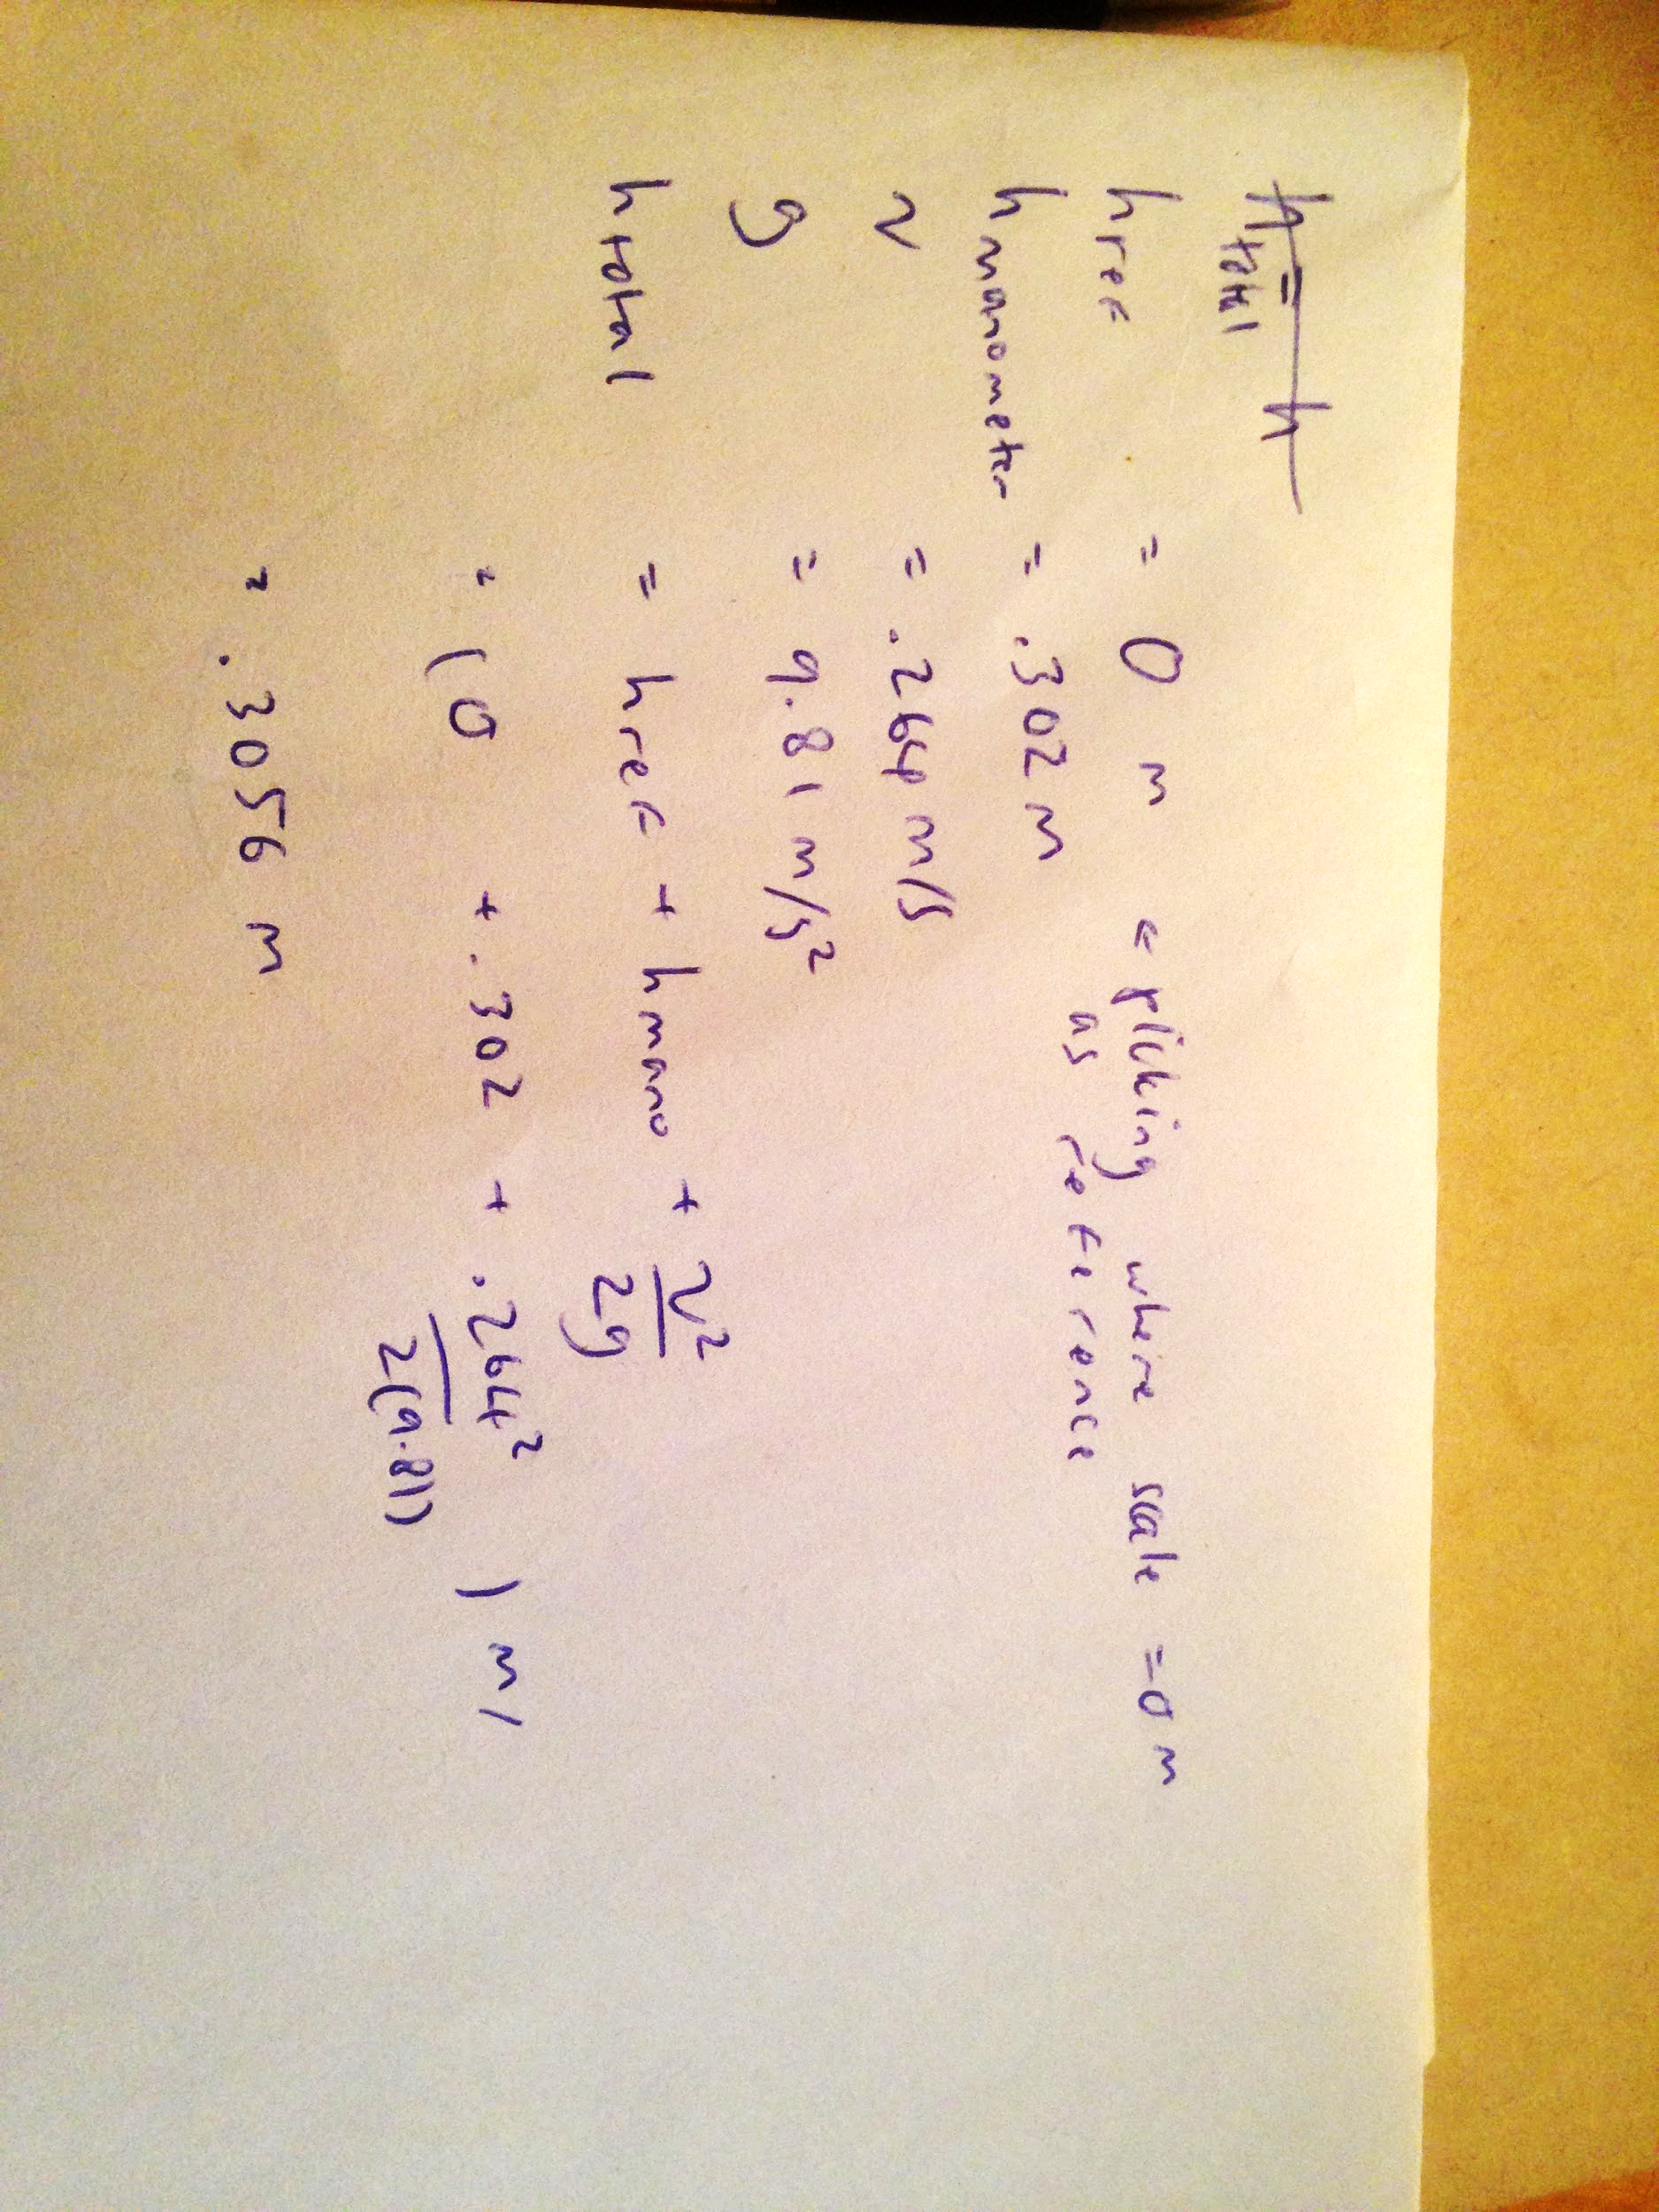 h total = h
h ref = 0 m = picking where scale = 0 m
as reference
h manometer = .302 m
v = .264 m/s
g = 9.81 m/s²
h total = h ref + h mano + v²/2g
= (0 + .302 + .264²/2(9.81)) m
= .3056 m